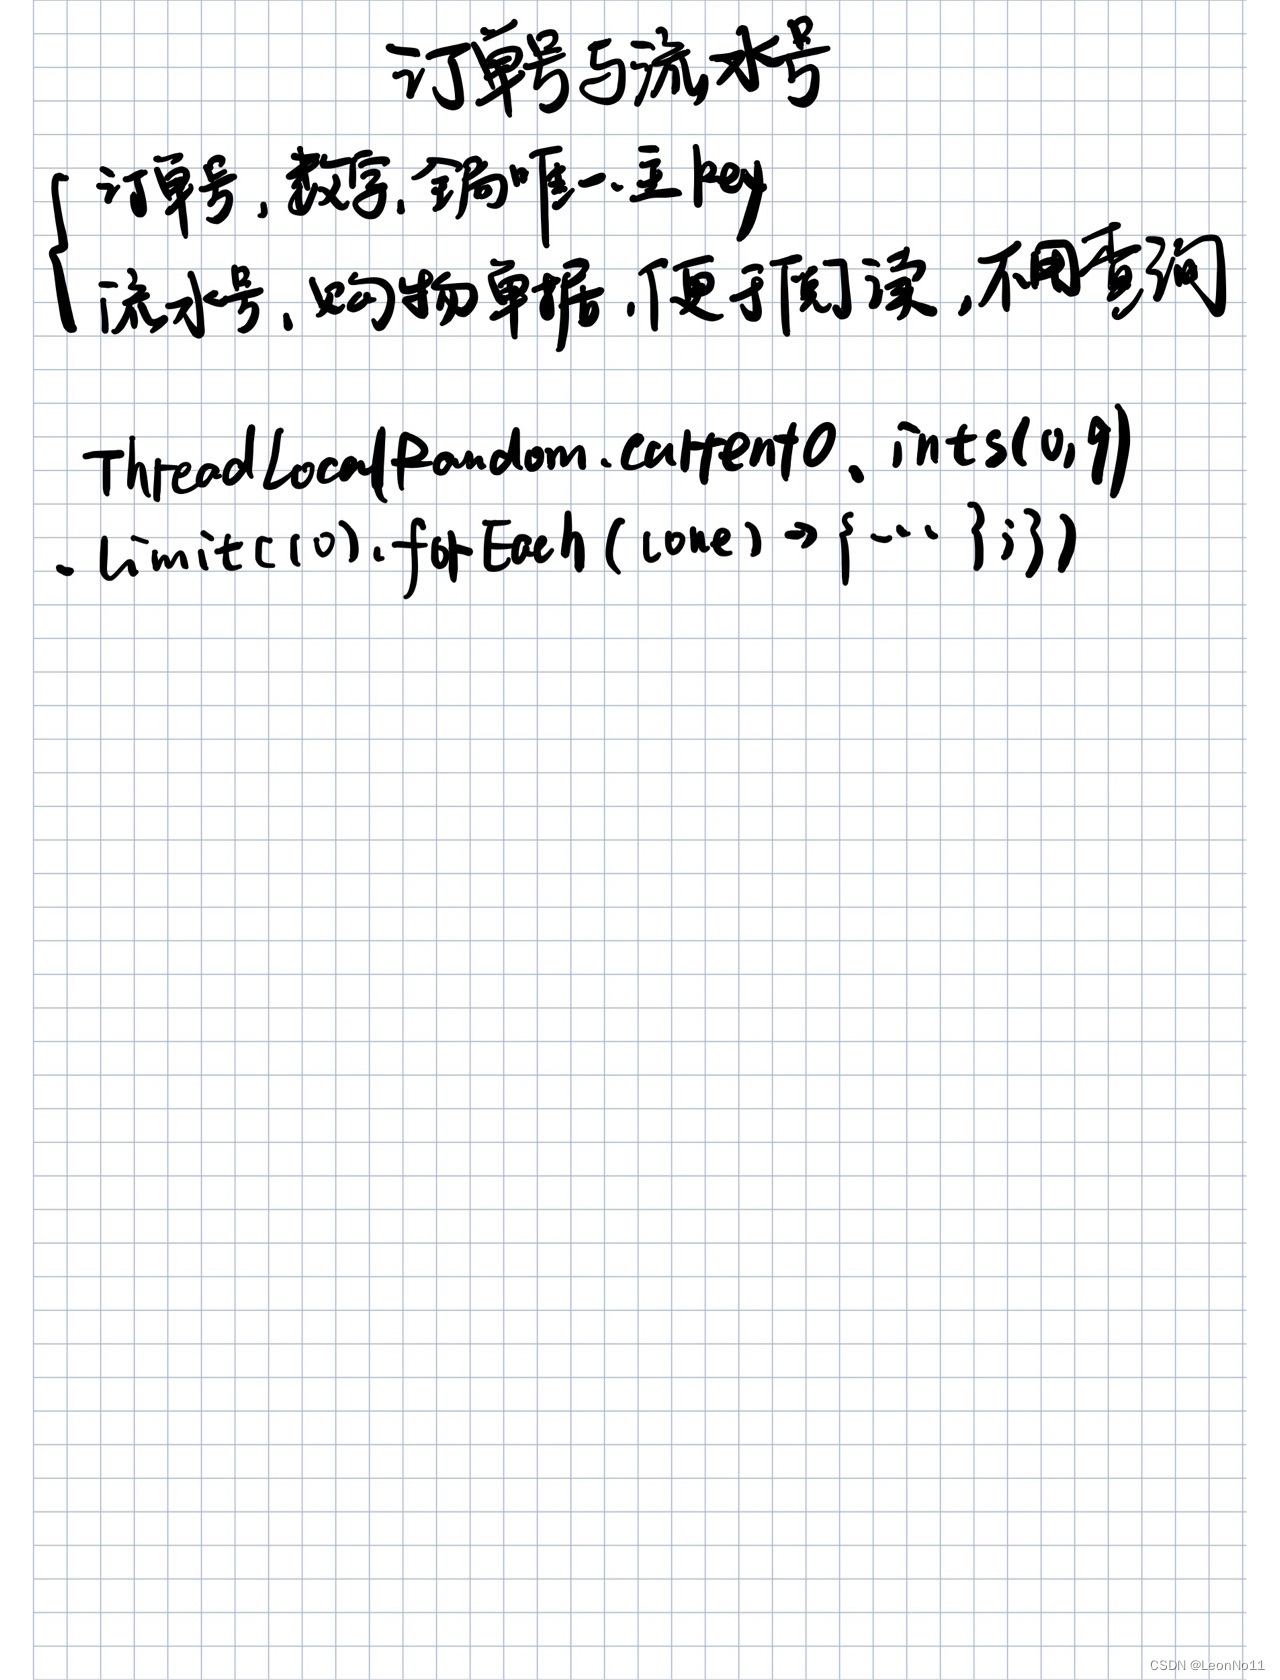 订单号与流水号
订单号,数字,全局唯一、主key
流水号、购物单据,便于阅读,不用查询
ThreadLocalRandom.current().ints(0,9)
.limit(10).forEach((one)→{...};})
CSDN @LeonNo11